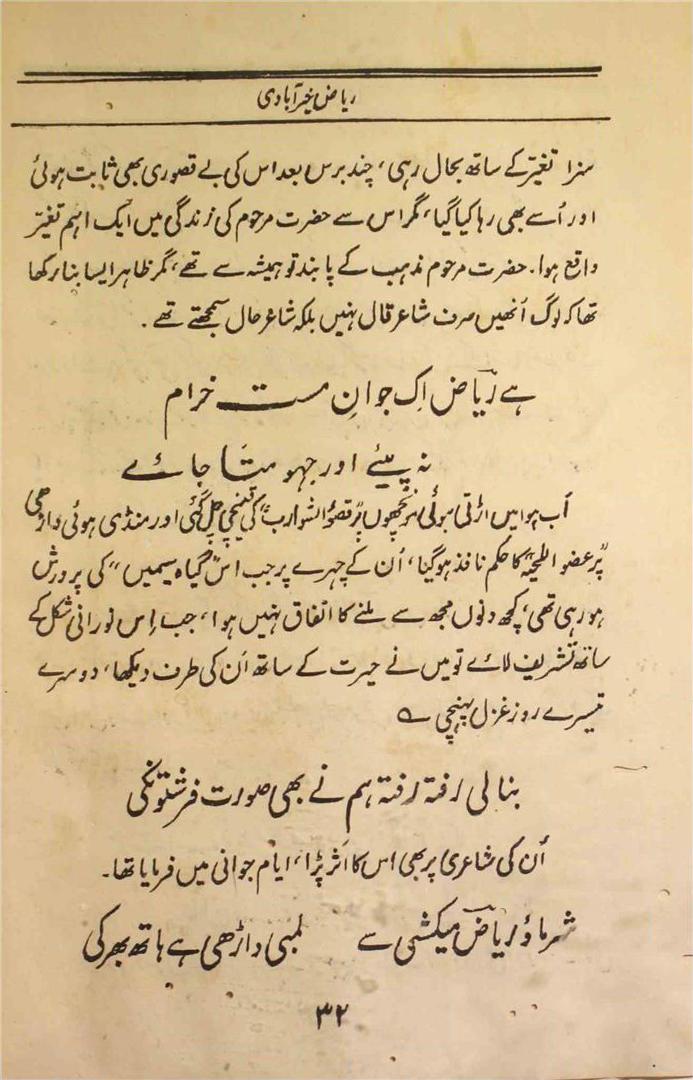 ریاض خیرآبادی
سزا تغیّر کے ساتھ بحال رہی، چند برس بعد اس کی بے قصوری بھی ثابت ہوئی
اور اُسے بھی رہا کیا گیا، مگر اس سے حضرت مرحوم کی زندگی میں ایک اہم تغیّر
واقع ہوا۔ حضرت مرحوم مذہب کے پابند تو ہمیشہ سے تھے، مگر ظاہر ایسا بنا رکھا
تھا کہ لوگ اُنھیں صرف شاعرِ قال نہیں بلکہ شاعرِ حال سمجھتے تھے۔
ہے ریاضؔ اِک جوانِ مست خرام
نہ پیئے اور جھومتا جائے
اَب ہوا میں اڑتی ہوئی مونچھوں پر "قصوا الشوارب" کی قینچی چل گئی اور منڈی ہوئی داڑھی
پر "عفو اللحیٰ" کا حکم نافذ ہوگیا، اُن کے چہرے پر جب اس "گیاہ سیمیں" کی پرورش
ہو رہی تھی، کچھ دنوں مجھ سے ملنے کا اتفاق نہیں ہوا، جب اِس نورانی شکل کے
ساتھ تشریف لائے تو میں نے حیرت کے ساتھ اُن کی طرف دیکھا، دوسرے
تیسرے روز غزل پہنچی ؎
بنا لی رفتہ رفتہ ہم نے بھی صورت فرشتونکی
اُن کی شاعری پر بھی اس کا اَثر پڑا، ایام جوانی میں فرمایا تھا۔
شرماؤ ریاضؔ میکشی سے لمبی داڑھی ہے ہاتھ بھر کی
۳۲